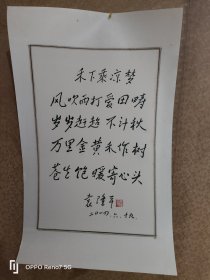 禾下乘凉梦
风吹雨打爱田畴
岁岁赶趁不计秋
万里金黄禾作树
苍生饱暖寄心头
袁隆平
二〇〇四.六.十九.
OPPO Reno7 5G